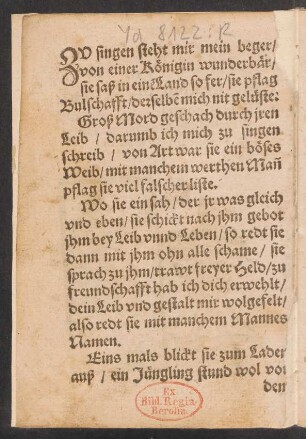 Yd 8122:R
ZV singen steht mir mein beger/
von einer Königin wunderbär/
sie saß in einē Land so fer/sie pflag
Bulschafft/derselbē mich nit gelüste:
Groß Mord geschach durch jren
Leib / darumb ich mich zu singen
schreib / von Art war sie ein böses
Weib/mit manchem werthen Mañ
pflag sie viel falscher liste.
Wo sie ein sah/ der jr was gleich
vnd eben/ sie schickt nach jhm gebot
jhm bey Leib vnnd Leben/ so redt sie
dann mit jhm ohn alle schame/ sie
sprach zu jhm/trawt freyer Held/zu
freundschafft hab ich dich erwehlt/
dein Leib vnd gestalt mir wolgefelt/
also redt sie mit manchem Mannes
Namen.
Eins mals blickt sie zum Laden
auß / ein Jüngling stund wol vor
den
Ex
Bibl. Regia
Berolin.